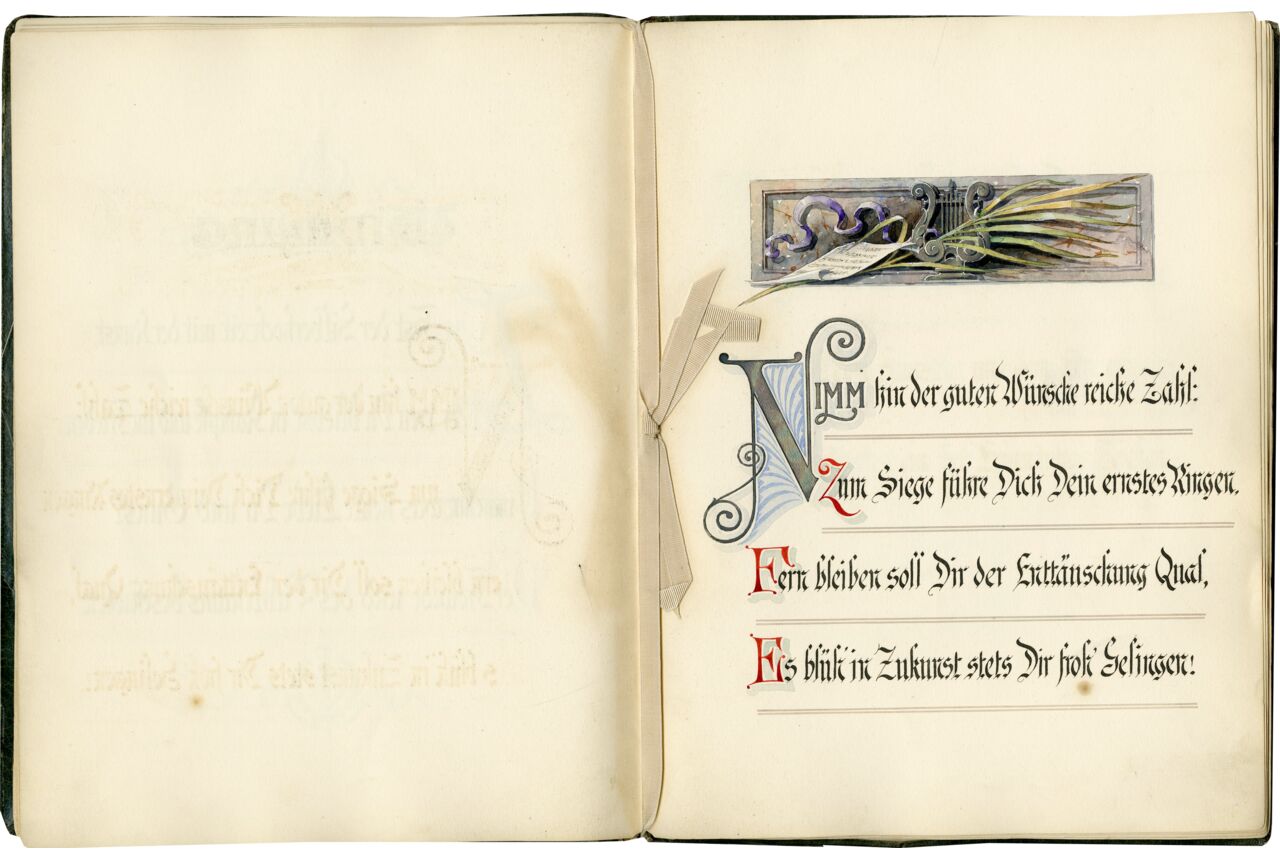 NIMM hin der guten Wünsche reiche Zahl:
Zum Siege führe Dich Dein ernstes Ringen,
Fern bleiben soll Dir der Enttäuschung Qual,
Es blüh' in Zukunft stets Dir froh' Gelingen!